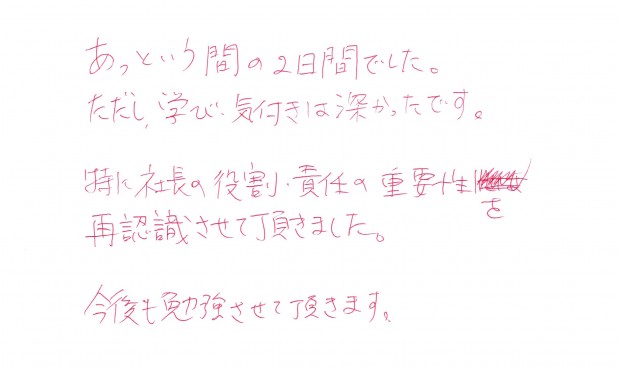 あっという間の2日間でした。
ただし、学び・気付きは深かったです。
特に社長の役割・責任の重要性を
再認識させて頂きました。
今後も勉強させて頂きます。